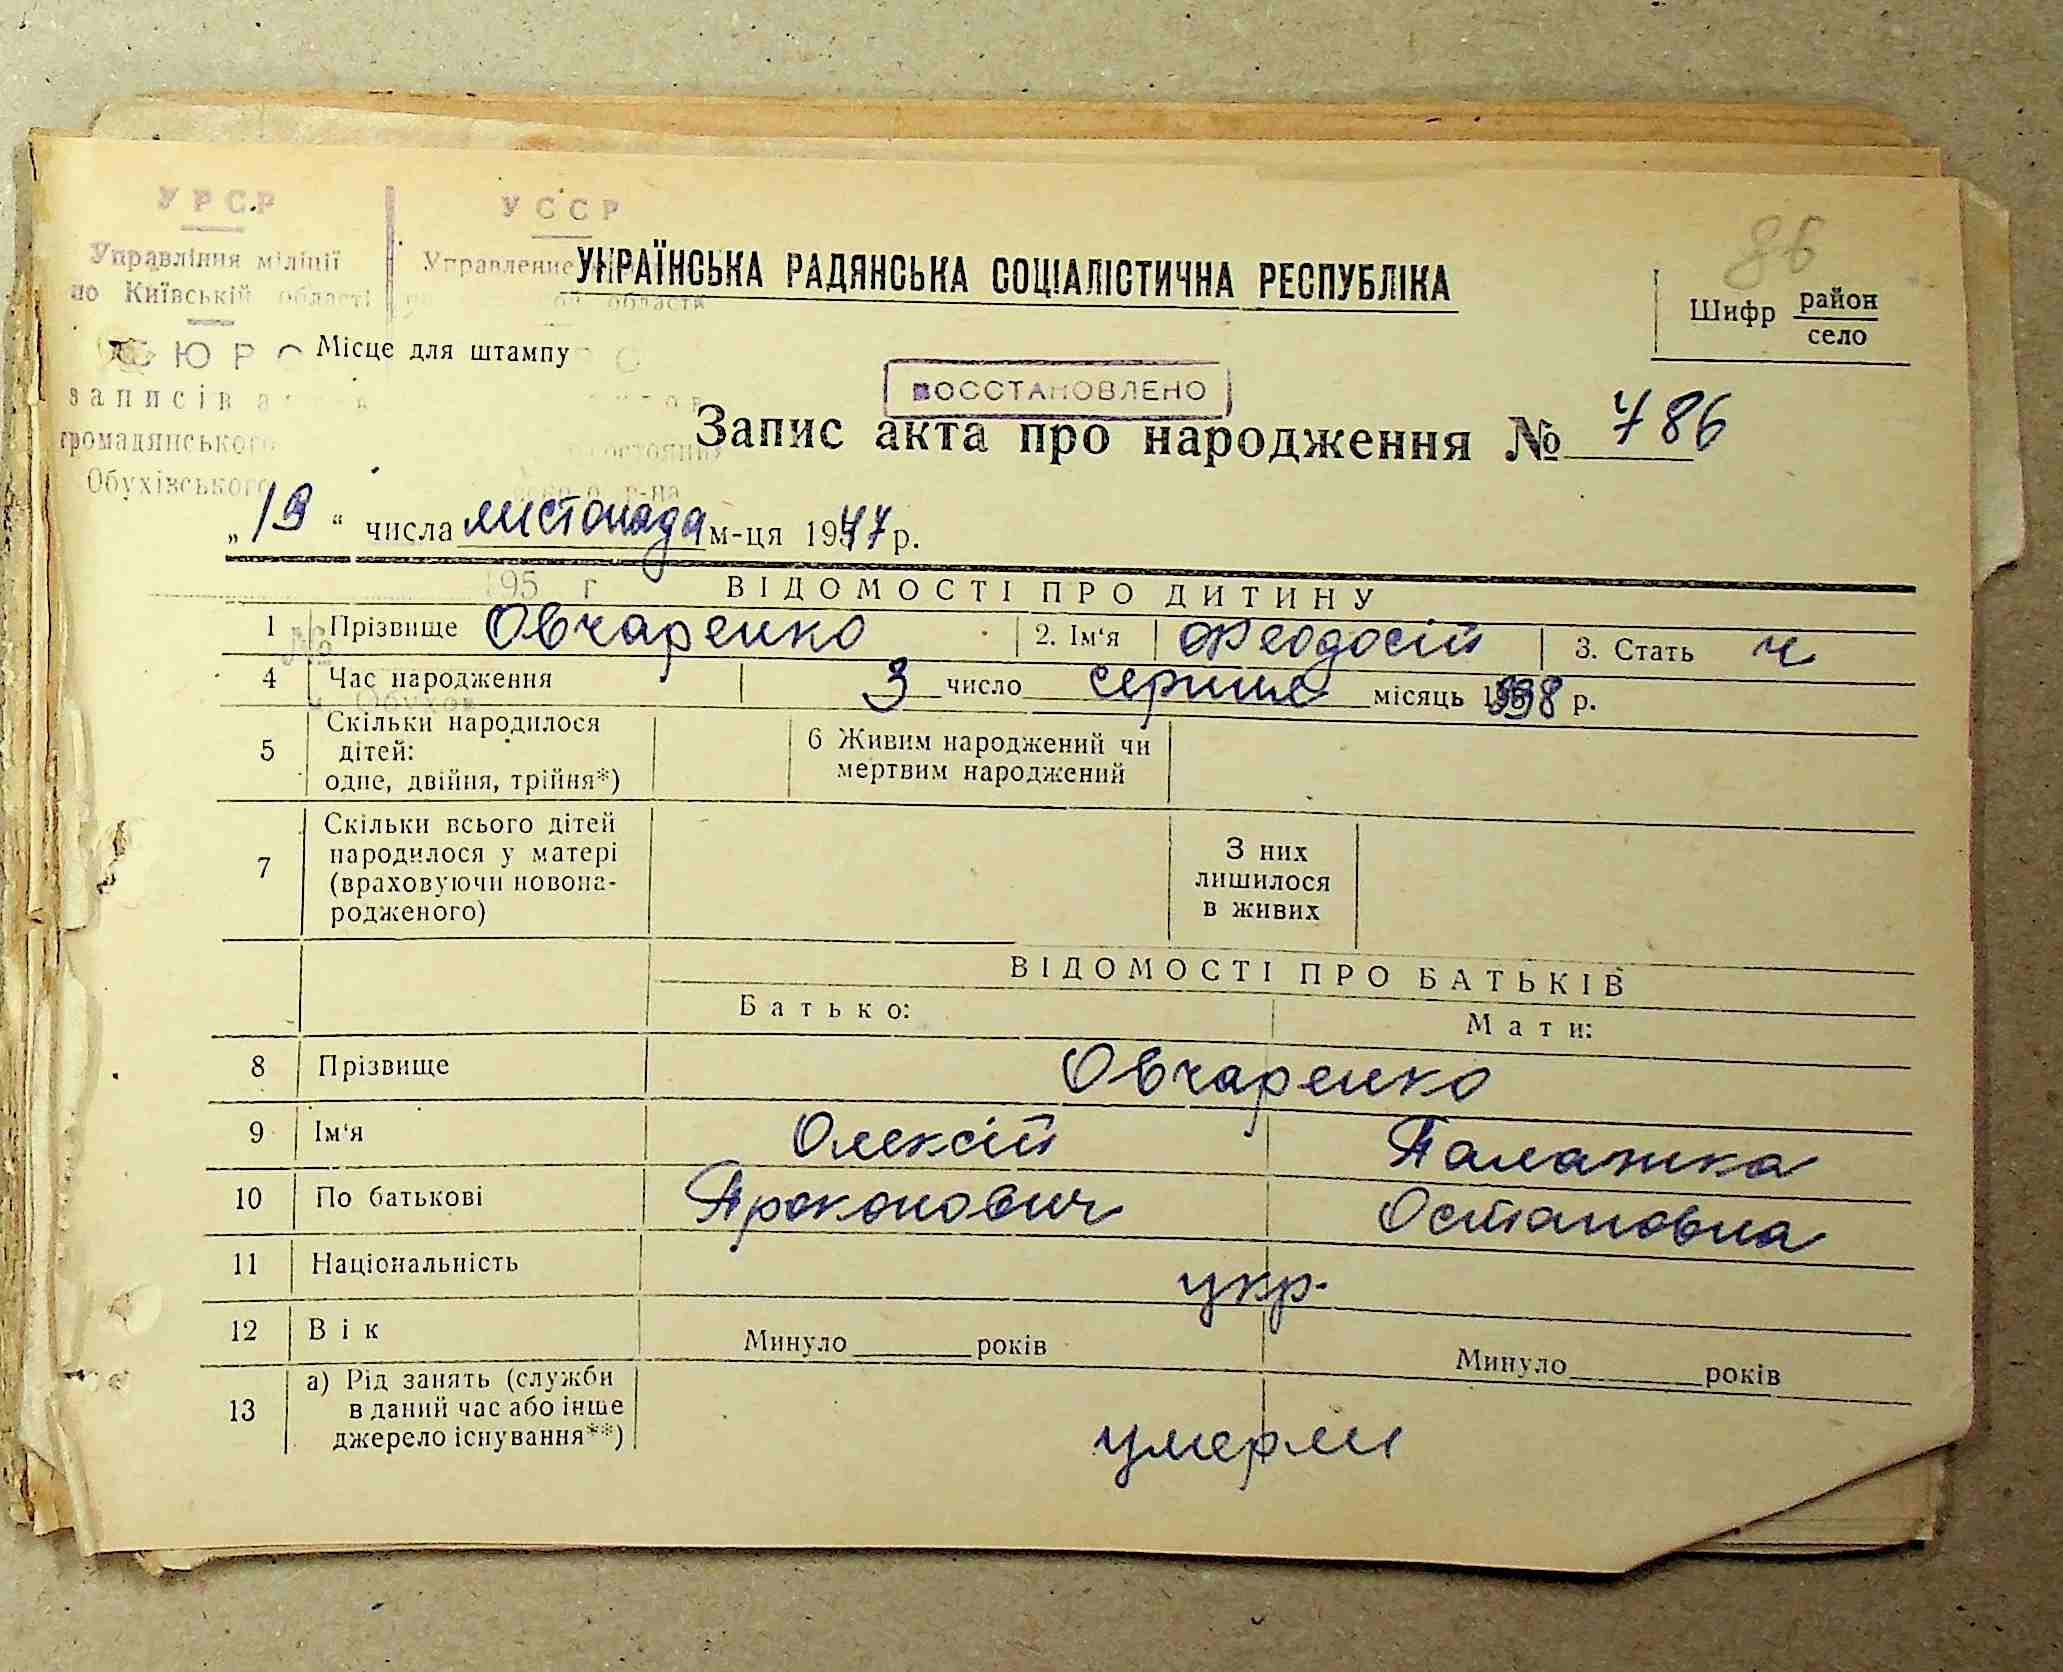 86
У Р С Р
У С С Р
Управління міліції
Управление
по Київській області
области
УКРАЇНСЬКА РАДЯНСЬКА СОЦІАЛІСТИЧНА РЕСПУБЛІКА
Шифр район
село
Місце для штампу
ВОССТАНОВЛЕНО
записів
громадянського
Обухівського
Запис акта про народження № 786
„19“ числа листопада м-ця 1947 р.
195 г
ВІДОМОСТІ ПРО ДИТИНУ
1 Прізвище Овчаренко 2. Ім'я Феодосій 3. Стать ч
4 Час народження 3 число серпня місяць 1938 р.
№
г. Обухов
5 Скільки народилося
дітей:
одне, двійня, трійня*)
6 Живим народжений чи
мертвим народжений
7 Скільки всього дітей
народилося у матері
(враховуючи новона-
родженого)
З них
лишилося
в живих
ВІДОМОСТІ ПРО БАТЬКІВ
Батько:
Мати:
8 Прізвище Овчаренко
9 Ім'я Олексій Палажка
10 По батькові Прокопович Остаповна
11 Національність укр.
12 Вік Минуло ______ років Минуло ______ років
13 а) Рід занять (служби
в даний час або інше
джерело існування**)
умерли